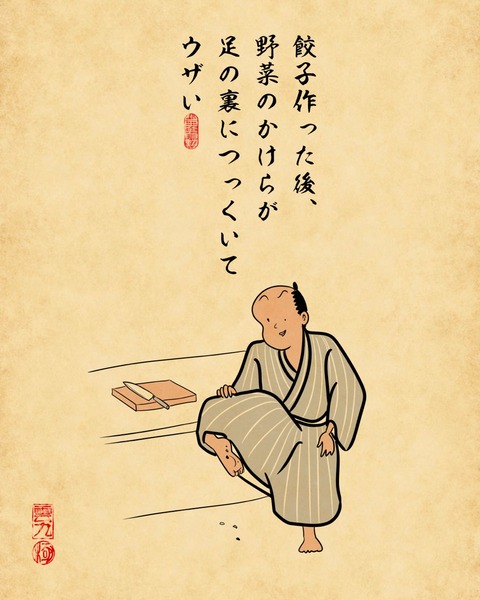 餃子作った後、
野菜のかけらが
足の裏につっくいて
ウザい